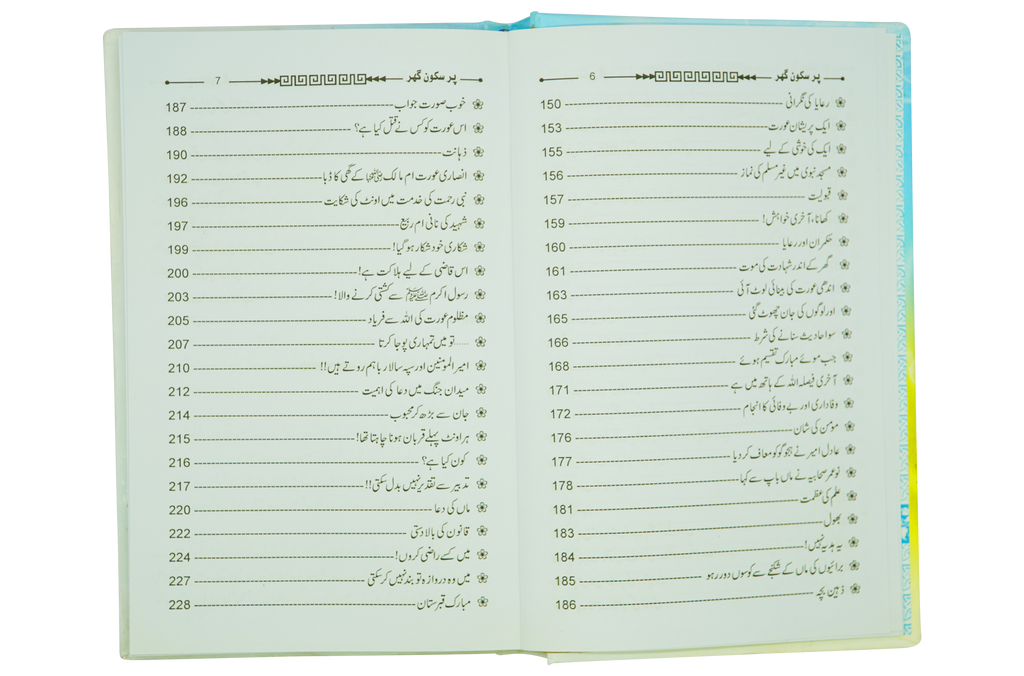 پر سکون گھر 6
رعایا کی نگرانی 150
ایک پریشان عورت 153
ایک کی خوشی کے لیے 155
مسجد نبوی میں غیر مسلم کی نماز 156
قبولیت 157
کھانا، آخری خواہش! 159
حکمران اور رعایا 160
گھر کے اندر شہادت کی موت 161
اندھی عورت کی بینائی لوٹ آئی 163
اور لوگوں کی جان چھوٹ گئی 165
سوا حادیث سنانے کی شرط 166
جب موئے مبارک تقسیم ہوئے 168
آخری فیصلہ اللہ کے ہاتھ میں ہے 171
وفاداری اور بے وفائی کا انجام 172
مومن کی شان 176
عادل امیر نے ہجو گو کو معاف کر دیا 177
نوعمر صحابیہ نے ماں باپ سے کہا 178
علم کی عظمت 181
بھول 183
یہ ہدیہ نہیں! 184
برائیوں کی ماں کے شکنجے سے کوسوں دور رہو 185
ذہین بچہ 186
پر سکون گھر 7
خوب صورت جواب 187
اس عورت کو کس نے قتل کیا ہے؟ 188
ذہانت 190
انصاری عورت ام مالک رضی اللہ عنہا کے گھی کا ڈبا 192
نبی رحمت کی خدمت میں اونٹ کی شکایت 196
شہید کی نانی ام ربیع 197
شکاری خود شکار ہو گیا! 199
اس قاضی کے لیے ہلاکت ہے! 200
رسول اکرم ﷺ سے کشتی کرنے والا! 203
مظلوم عورت کی اللہ سے فریاد 205
تو میں تمہاری پوجا کرتا 207
امیر المومنین اور سپہ سالار باہم روتے ہیں!! 210
میدان جنگ میں دعا کی اہمیت 212
جان سے بڑھ کر محبوب 214
ہر اونٹ پہلے قربان ہونا چاہتا تھا! 215
کون کیا ہے؟ 216
تدبیر سے تقدیر نہیں بدل سکتی!! 217
ماں کی دعا 220
قانون کی بالادستی 222
میں کسے راضی کروں! 224
میں وہ دروازہ تو بند نہیں کر سکتی 227
مبارک قبرستان 228